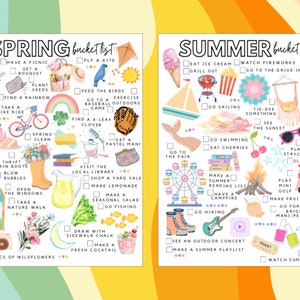 SPRING bucket list
HAVE A PICNIC
FLY A KITE
GET A
BOUQUET
PLANT
SEEDS
FEED THE BIRDS
FIND A RAINBOW
EXERCISE
OUTDOORS
TAKE A
BIKE RIDE
BASEBALL
GAME
SPRING
CLEAN
FIND A 4-LEAF
CLOVER
GET A
PASTEL MANI
THRIFT
RAIN BOOTS
VISIT THE
LOCAL LIBRARY
BLOW
BUBBLES
SHOP A YARD SALE
OPEN
THE WINDOWS
MAKE LEMONADE
MAKE A
SEASONAL SALAD
TAKE A
NATURE WALK
GO FISHING
DRAW WITH
SIDEWALK CHALK
MAKE A
FRESH COCKTAIL
PICS OF WILDFLOWERS
SUMMER bucket
EAT ICE CREAM
WATCH FIREWORKS
GRILL OUT
GO TO THE DRIVE-IN
TIE DYE
SOMETHING
SEE
THE SUNSET
GO SWIMMING
EAT CHERRIES
GO TO
THE FAIR
MAKE A
SUMMER
READING
LIST
HAVE A
CAMPFIRE
GO HIKING
GO FOR
MINI
SEE AN OUTDOOR CONCERT
MAKE A SUMMER PLAYLIST
WATCH